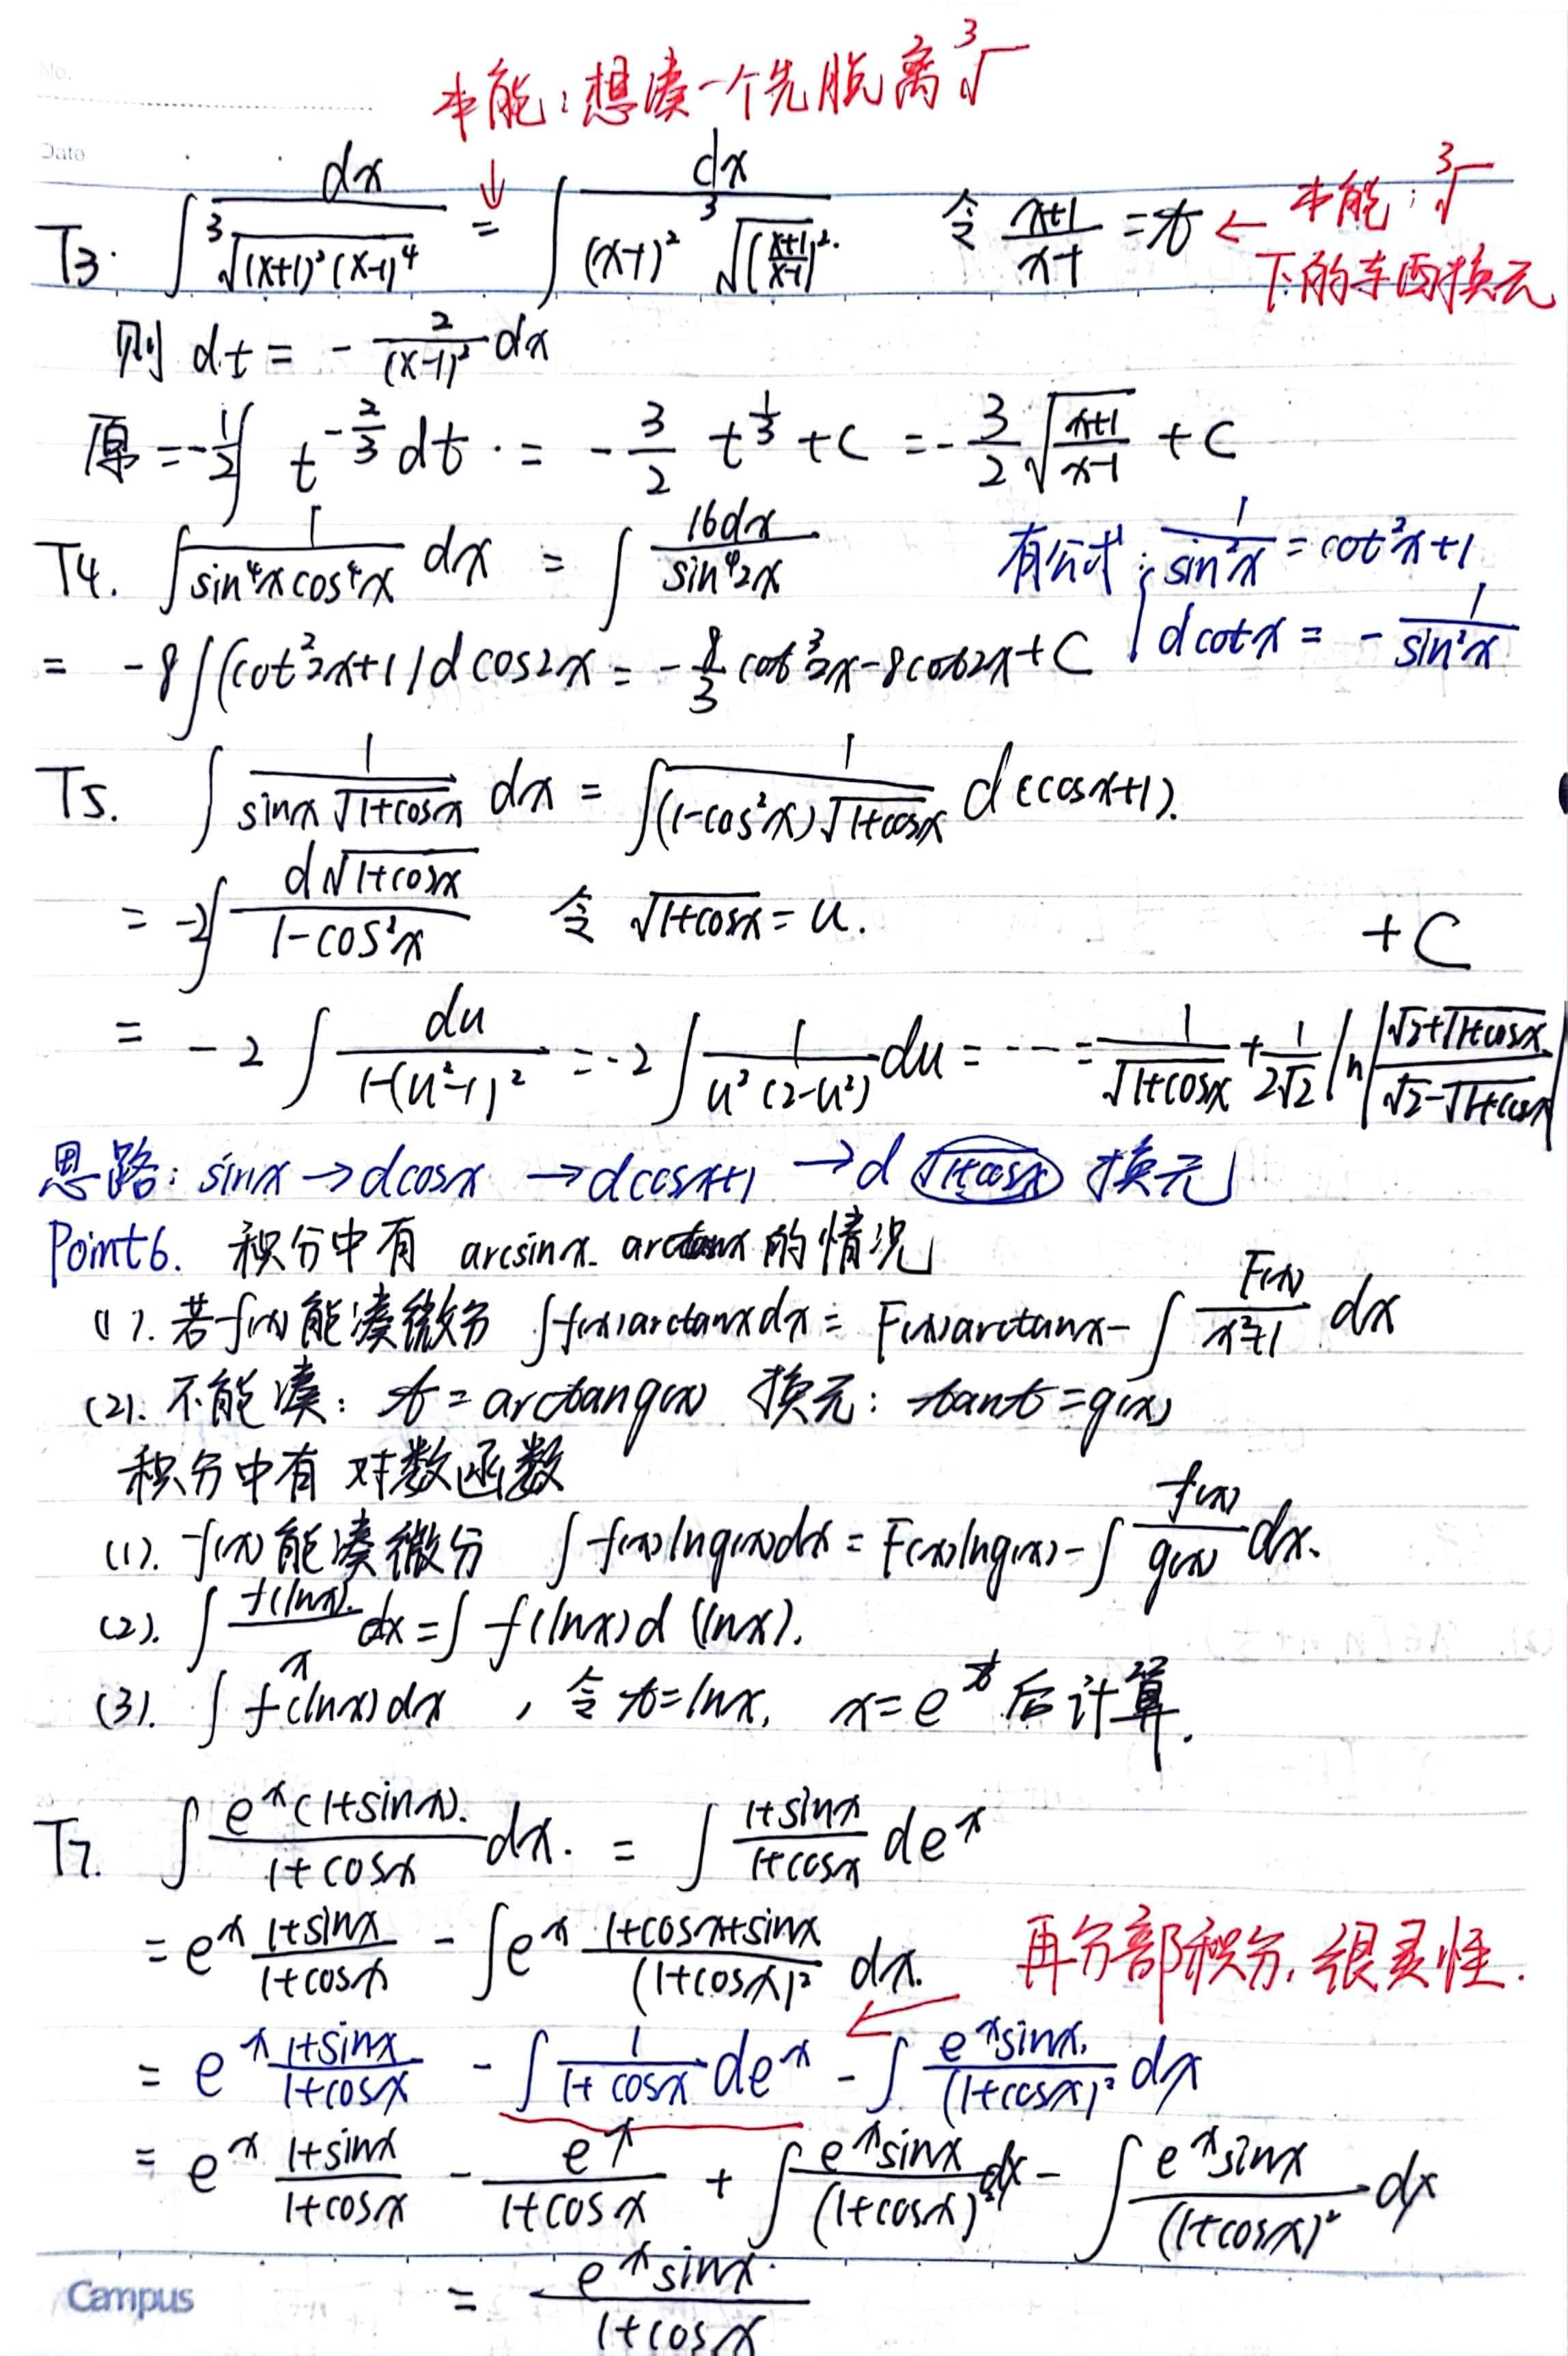 No.
本能：想凑一个先脱离 ∛
Date
T3. ∫ dx/∛((x+1)²(x-1)⁴) = ∫ dx/((x-1)² ∛((x+1)/(x-1))².) 令 (x+1)/(x-1) = t ← 本能：∛
下的东西换元
则 dt = - 2/(x-1)² dx
原 = -1/2 ∫ t^(-2/3) dt · = - 3/2 t^(1/3) + C = - 3/2 √((x+1)/(x-1)) + C
T4. ∫ 1/(sin⁴x cos⁴x) dx = ∫ 16dx/sin⁴2x 有公式：1/sin²x = cot²x+1
= -8∫(cot²2x+1)d cos2x = - 8/3 cot³2x - 8cot2x + C d cotx = - 1/sin²x
T5. ∫ 1/(sinx √(1+cosx)) dx = ∫ 1/((1-cos²x)√(1+cosx)) d(cosx+1).
= -2∫ d√(1+cosx)/(1-cos²x) 令 √(1+cosx) = u. + C
= -2 ∫ du/(1-(u²-1)²) = -2 ∫ 1/(u²(2-u²)) du = --- = 1/√(1+cosx) + 1/(2√2) ln|(√2+√(1+cosx))/(√2-√(1+cosx))|
思路：sinx → dcosx → dcosx+1 → d √(1+cosx) 换元
Point6. 积分中有 arcsinx. arctanx 的情况
(1). 若f(x)能凑微分 ∫f(x)arctanxdx = F(x)arctanx - ∫ F(x)/(x²+1) dx
(2). 不能凑：t = arctang(x) 换元：tant = g(x)
积分中有 对数函数
(1). f(x)能凑微分 ∫ f(x)lng(x)dx = F(x)lng(x) - ∫ f(x)/g(x) dx.
(2). ∫ f(lnx)./x dx = ∫ f(lnx)d (lnx).
(3). ∫ f(lnx)dx ，令 t=lnx, x=e^t 后计算.
T7. ∫ e^x(1+sinx)./(1+cosx) dx. = ∫ (1+sinx)/(1+cosx) de^x
= e^x (1+sinx)/(1+cosx) - ∫e^x (1+cosx+sinx)/(1+cosx)² dx. 再分部积分, 很灵性.
= e^x (1+sinx)/(1+cosx) - ∫ 1/(1+cosx) de^x - ∫ e^x sinx./(1+cosx)² dx
= e^x (1+sinx)/(1+cosx) - e^x/(1+cosx) + ∫ e^x sinx/(1+cosx)² dx - ∫ e^x sinx/(1+cosx)² dx
= e^x sinx./(1+cosx)
Campus